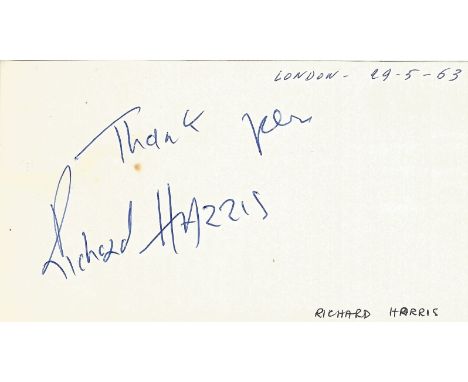 LONDON - 29-5-63
Thank you
Richard HARRIS
RICHARD HARRIS